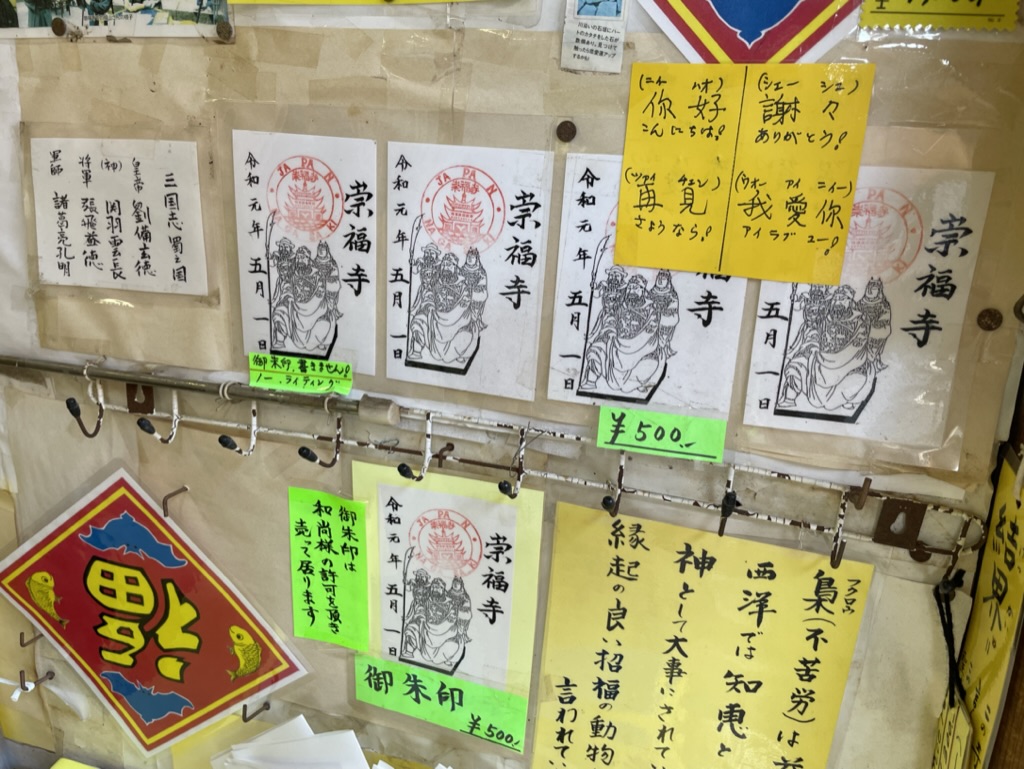 三国志 蜀之国
皇帝 劉備玄徳
(初)
将軍
関羽雲長
張飛益徳
軍師 諸葛亮孔明
JAPAN
崇福寺
崇福寺
令和元年五月一日
JAPAN
崇福寺
崇福寺
令和元年五月一日
福寺
令和元年五月一日
崇福寺
五月一日
(ニイ ハオ)
你好
こんにちは!
(シェー シエ)
謝々
ありがとう!
(ツァイ チェン)
再見
さようなら!
(ウオー アイ ニィー)
我愛你
アイラブユー!
御朱印、書きません!
ノー、ライティング
¥500.-
福
御朱印は
和尚様の許可を頂き
売って居ります
JAPAN
崇福寺
崇福寺
令和元年五月一日
御朱印
¥500.-
フクロウ
梟(不苦労)は
西洋では知恵と
神として大事にされてい
縁起の良い招福の動物
言われてい
結界の